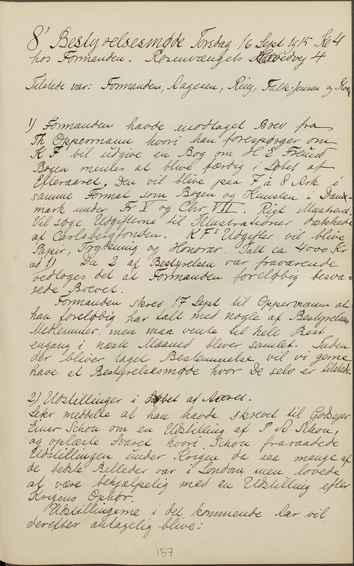 8' Bestyrelsesmøde Torsdag 16 Sept 1915 Kl 4
hos Formanden. Rosenvængets Hovedvej 4
Tilstede var: Formanden, Aagesen, Riis, Falk-Jensen og
1) Formanden havde modtaget Brev fra
Th. Oppermann hvori han forespørger om
K F vil udgive en Bog om H E Freund
Bogen menes at blive færdig i Løbet af
Efteraaret. Den vil blive paa 7 à 8 Ark i
samme Format som Bogen og Kunsten i Dan-
mark under Fr. V og Chr VII. Rigt illustreret.
Vil søge Udgifterne til Illustrationer dækkede
af Carlsbergfonden. K F Udgifter vil blive
Papir, Trykning og Honorar. I alt ca. 4000 Kr
Da 2 af Bestyrelsen var fraværende
vedtoges det at Formanden foreløbig besva-
rede Brevet.
Formanden skrev 17 Sept til Oppermann at
han foreløbig har talt med nogle af Bestyrelsens
Medlemmer, men maa vente til hele Best
engang i næste Maaned bliver samlet. Inden
der bliver taget Bestemmelse vil vi gerne
have et Bestyrelsesmøde hvor De selv er tilstede.
2) Udstillinger i Løbet af Aaret.
Sekr meddelte at han havde skrevet til Godsejer
Einer Schou om en Udstilling af
og oplæste Svaret hvori Schou fraraadede
Udstillingen under Krigen da saa mange af
de bedste Billeder var i London men lovede
at være behjælpelig med en Udstilling efter
Krigens Ophør.
Udstillingerne i det kommende Aar vil
derefter antagelig blive:
157